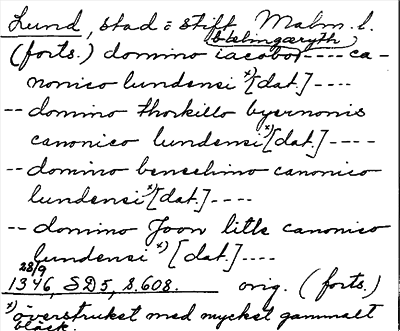 Lund, stad o stift, Malm. l.
(forts.) domino iacobo ---- ca-
nonico lundensi x) [dat.] ----
-- domino thorkillo byernonis
canonico lundensi x) [dat.] ----
-- domino benechino canonico
lundensi x) [dat.] ----
-- domino Joon litlæ canonico
lundensi x) [dat.] ----
28/9
1346, SD5, s. 608. orig. (forts.)
x) överstruket med mycket gammalt
bläck.